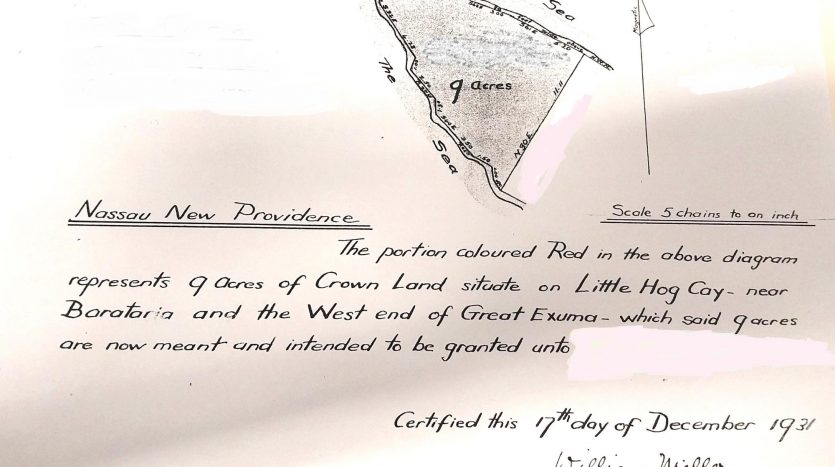 Sea
The
Sea
9 acres
N 30 E
Magnetic
Nassau New Providence
Scale 5 chains to an inch
The portion coloured Red in the above diagram
represents 9 acres of Crown Land situate on Little Hog Cay - near
Barataria and the West end of Great Exuma - which said 9 acres
are now meant and intended to be granted unto
Certified this 17th day of December 1931